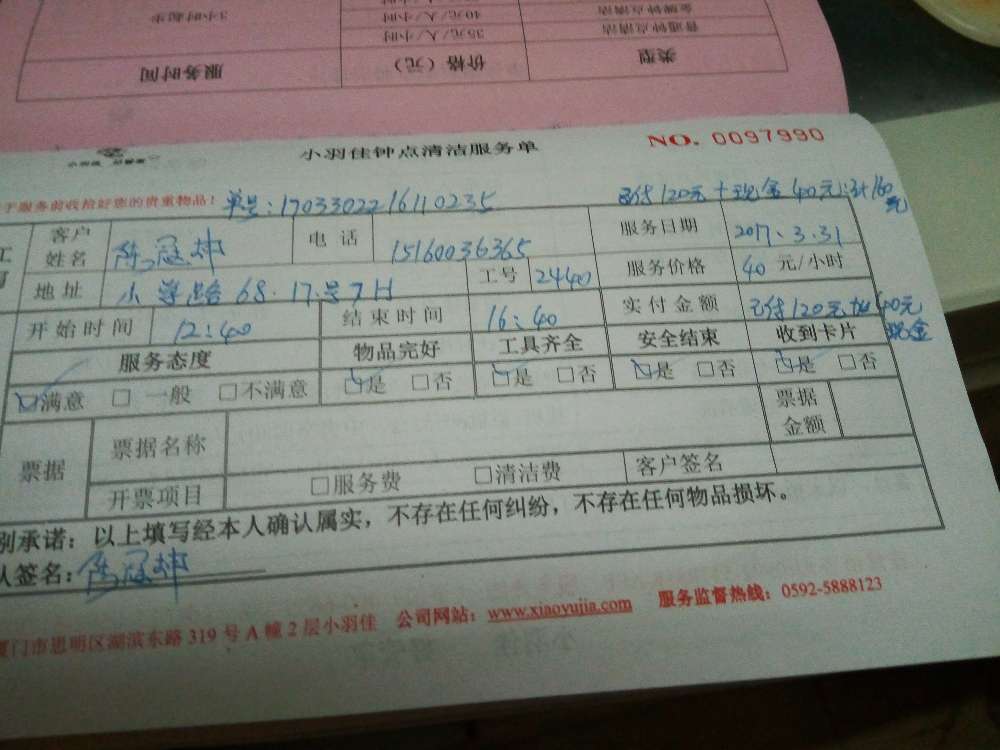 3小时起步
40元/人/小时
金牌钟点清洁
35元/人/小时
普通钟点清洁
服务时间
价格（元）
类型
小羽佳钟点清洁服务单
NO. 0097990
于服务前收拾好您的贵重物品！
单号：1703302216110235
已付120元+现金40元:计160元
客户姓名
陈冠坤
电 话
15160036365
服务日期
2017.3.31
地址
小学路68.17号7H
工号
2440
服务价格
40 元/小时
开始时间
12:40
结束时间
16:40
实付金额
已付120元加40元现金
服务态度
物品完好
工具齐全
安全结束
收到卡片
☑满意 □ 一般 □不满意
☑是 □否
☑是 □否
☑是 □否
☑是 □否
票据
票据名称
票据金额
开票项目
□服务费 □清洁费
客户签名
别承诺：以上填写经本人确认属实，不存在任何纠纷，不存在任何物品损坏。
人签名：陈冠坤
厦门市思明区湖滨东路 319 号 A 幢 2 层小羽佳 公司网站：www.xiaoyujia.com 服务监督热线：0592-5888123